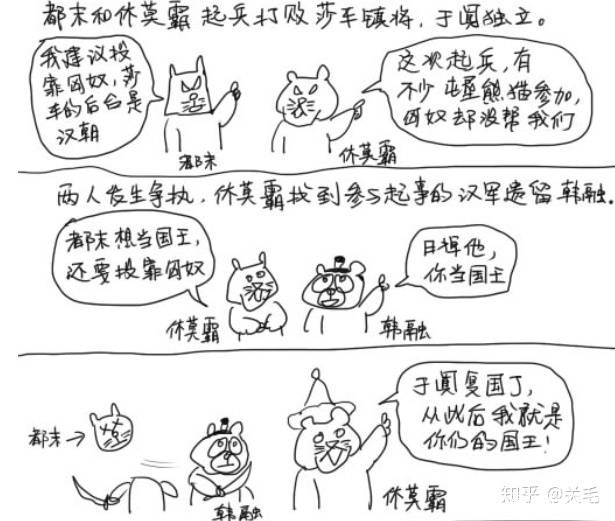 都末和休莫霸起兵打败莎车镇将，于阗独立。
我建议投
靠匈奴，莎
车的后台是
汉朝
都末
这次起兵，有
不少屯垦熊猫参加，
匈奴却没帮我们
休莫霸
两人发生争执，休莫霸找到参与起事的汉军遗留韩融。
都末想当国王，
还要投靠匈奴
休莫霸
日捏他，
你当国王
韩融
都末→
韩融
于阗复国了，
从此后我就是
你们的国王！
休莫霸
知乎 @关毛